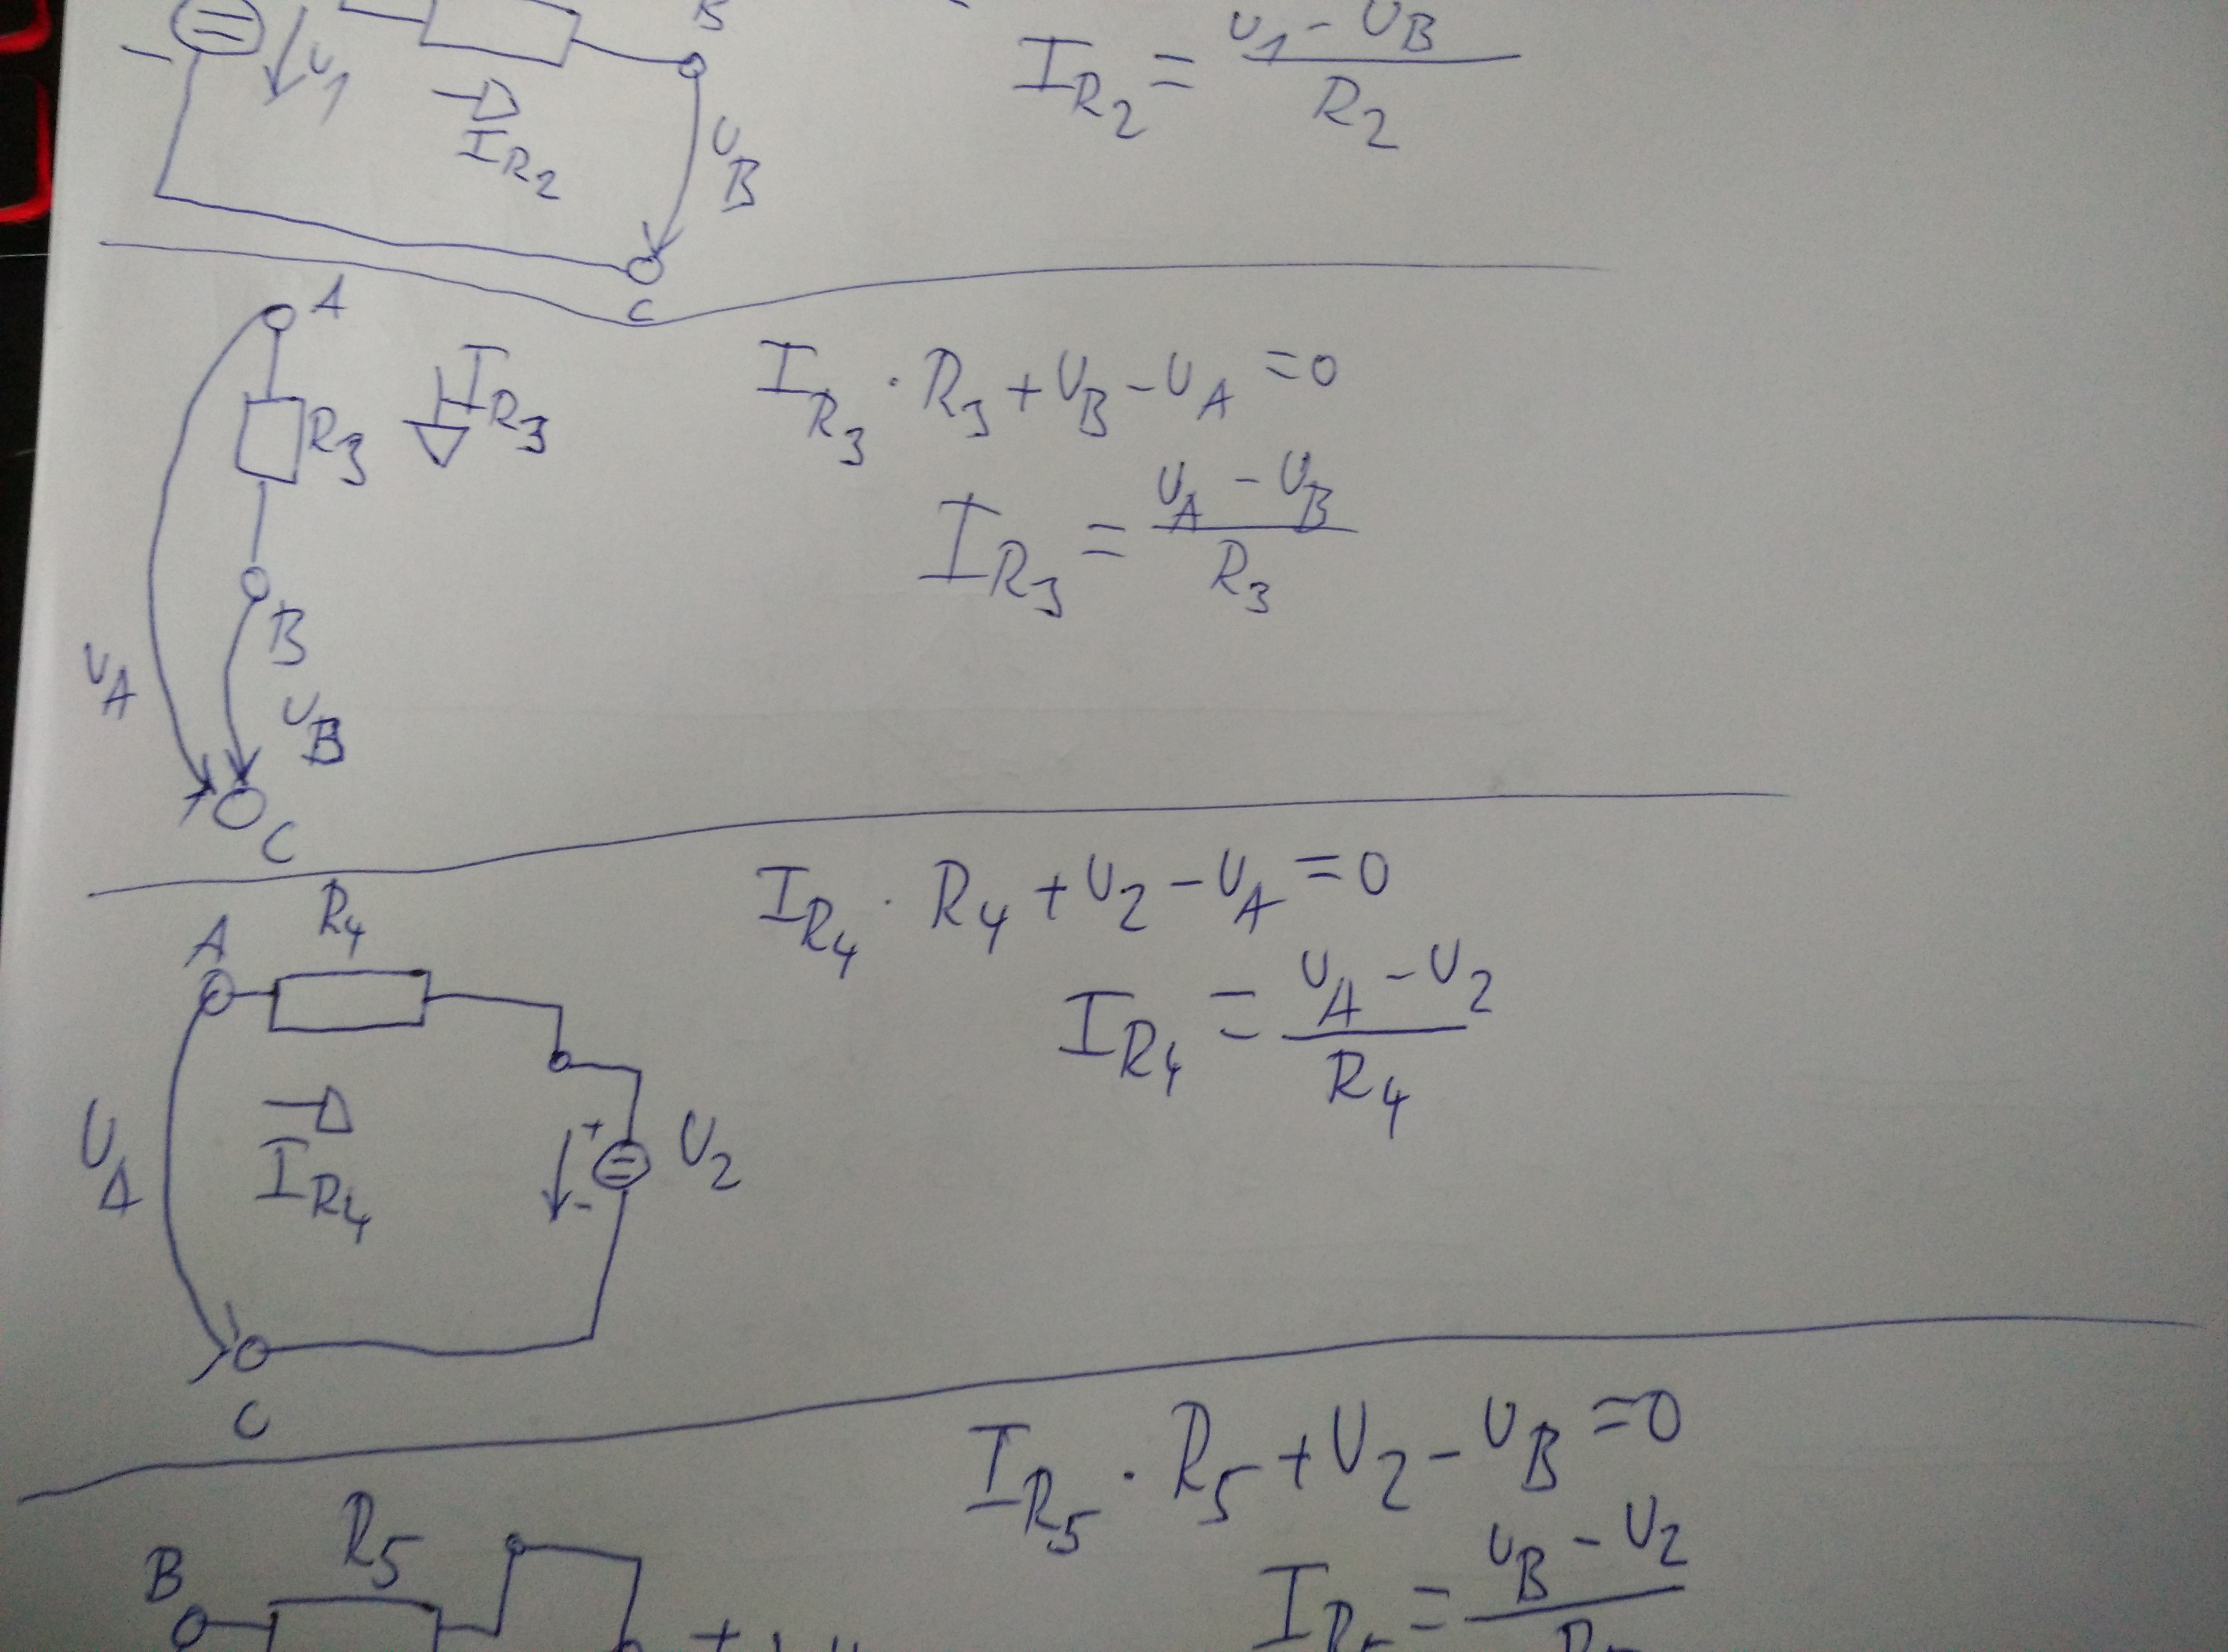 B
U1
I_R2
U_B
C
I_R2 = (U1 - U_B) / R2
A
R3
I_R3
U_A
B
U_B
C
I_R3 · R3 + U_B - U_A = 0
I_R3 = (U_A - U_B) / R3
R4
A
U_A
I_R4
+
-
U2
C
I_R4 · R4 + U2 - U_A = 0
I_R4 = (U_A - U2) / R4
R5
B
+
I_R5 · R5 + U2 - U_B = 0
I_R5 = (U_B - U2) /